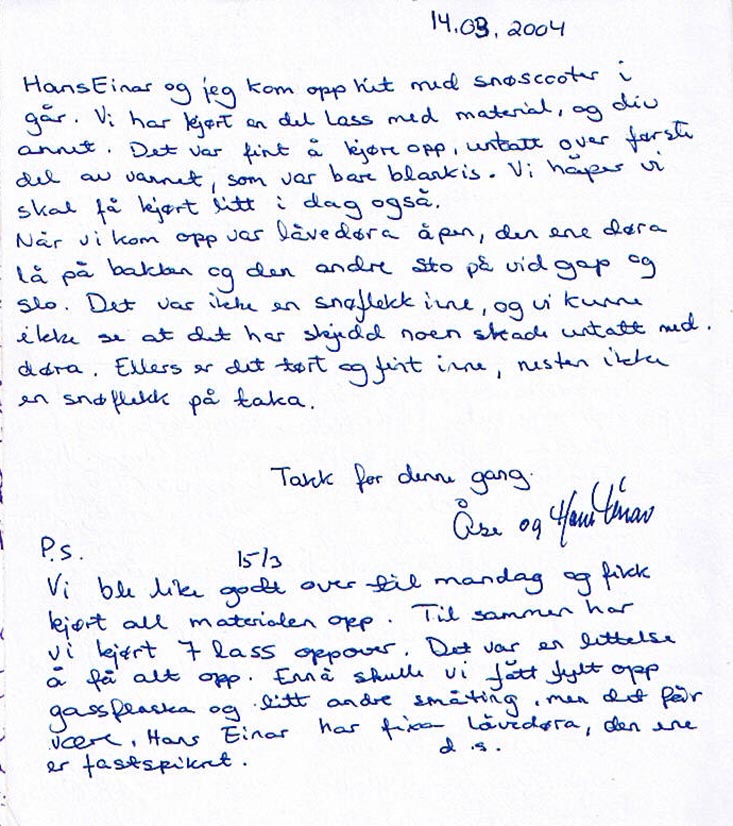 14.03.2004
Hans Einar og jeg kom opp hit med snøsccoter i
går. Vi har kjørt en del lass med material, og div
annet. Det var fint å kjøre opp, untatt over første
del av vannet, som var bare blankis. Vi håper vi
skal få kjørt litt i dag også.
Når vi kom opp var låvedøra åpen, den ene døra
lå på bakken og den andre sto på vid gap og
slo. Det var ikke en snøflekk inne, og vi kunne
ikke se at det har skjedd noen skade untatt med.
døra. Ellers er det tørt og fint inne, nesten ikke
en snøflekk på taka.
Takk for denne gang.
Åse og Hans Einar
P.s.
15/3
Vi ble like godt over til mandag og fikk
kjørt all materialen opp. Til sammen har
vi kjørt 7 lass oppover. Det var en lettelse
å få alt opp. Ennå skulle vi fått fylt opp
gassflaska og litt andre småting, men det får
være. Hans Einar har fixa låvedøra, den ene
er fastspikret.
d.s.